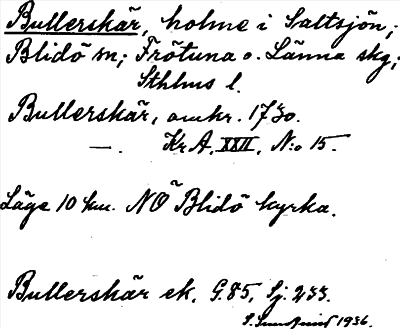 Bullerskär, holme i Saltsjön;
Blidö sn; Frötuna o. Länna skg;
Sthlms l.
Bullerskär, omkr. 1730.
—. Kr A. XXII. N:o 15.
Läge 10 km. NÖ Blidö kyrka.
Bullerskär ek. G.85, Sj. 233.
1936.